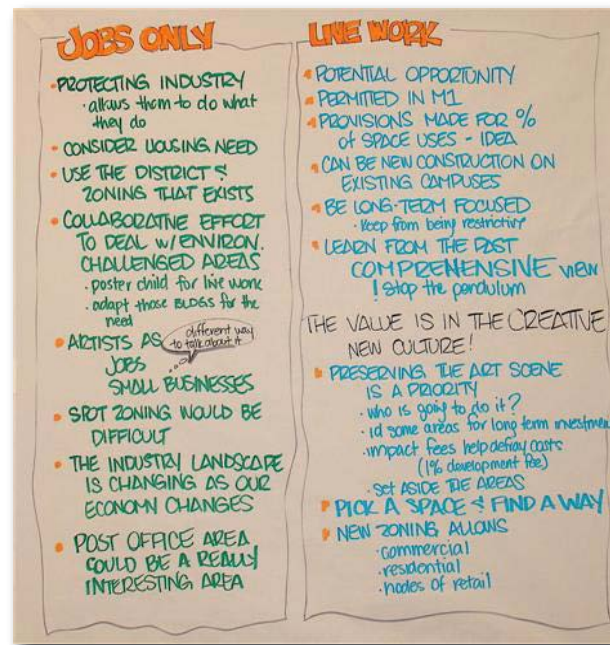 JOBS ONLY
• PROTECTING INDUSTRY
• allows them to do what
they do
• CONSIDER HOUSING NEED
• USE THE DISTRICT &
ZONING THAT EXISTS
• COLLABORATIVE EFFORT
TO DEAL W/ENVIRON.
CHALLENGED AREAS
• poster child for live work
• adapt those BLDGS for the
need
• ARTISTS AS
different way
to talk about it
JOBS
SMALL BUSINESSES
• SPOT ZONING WOULD BE
DIFFICULT
• THE INDUSTRY LANDSCAPE
IS CHANGING AS OUR
ECONOMY CHANGES
• POST OFFICE AREA
COULD BE A REALLY
INTERESTING AREA
LIVE WORK
• POTENTIAL OPPORTUNITY
• PERMITTED IN M1
• PROVISIONS MADE FOR %
of SPACE USES - IDEA
• CAN BE NEW CONSTRUCTION ON
EXISTING CAMPUSES
• BE LONG-TERM FOCUSED
• keep from being restrictive
• LEARN FROM THE PAST
COMPREHENSIVE VIEW
! Stop the pendulum
THE VALUE IS IN THE CREATIVE
NEW CULTURE!
• PRESERVING THE ART SCENE
IS A PRIORITY
• who is going to do it?
• id some areas for long term investment
• impact fees help defray costs
(1% development fee)
• SET ASIDE THE AREAS
• PICK A SPACE & FIND A WAY
• NEW ZONING ALLOWS
• commercial
• residential
• nodes of retail